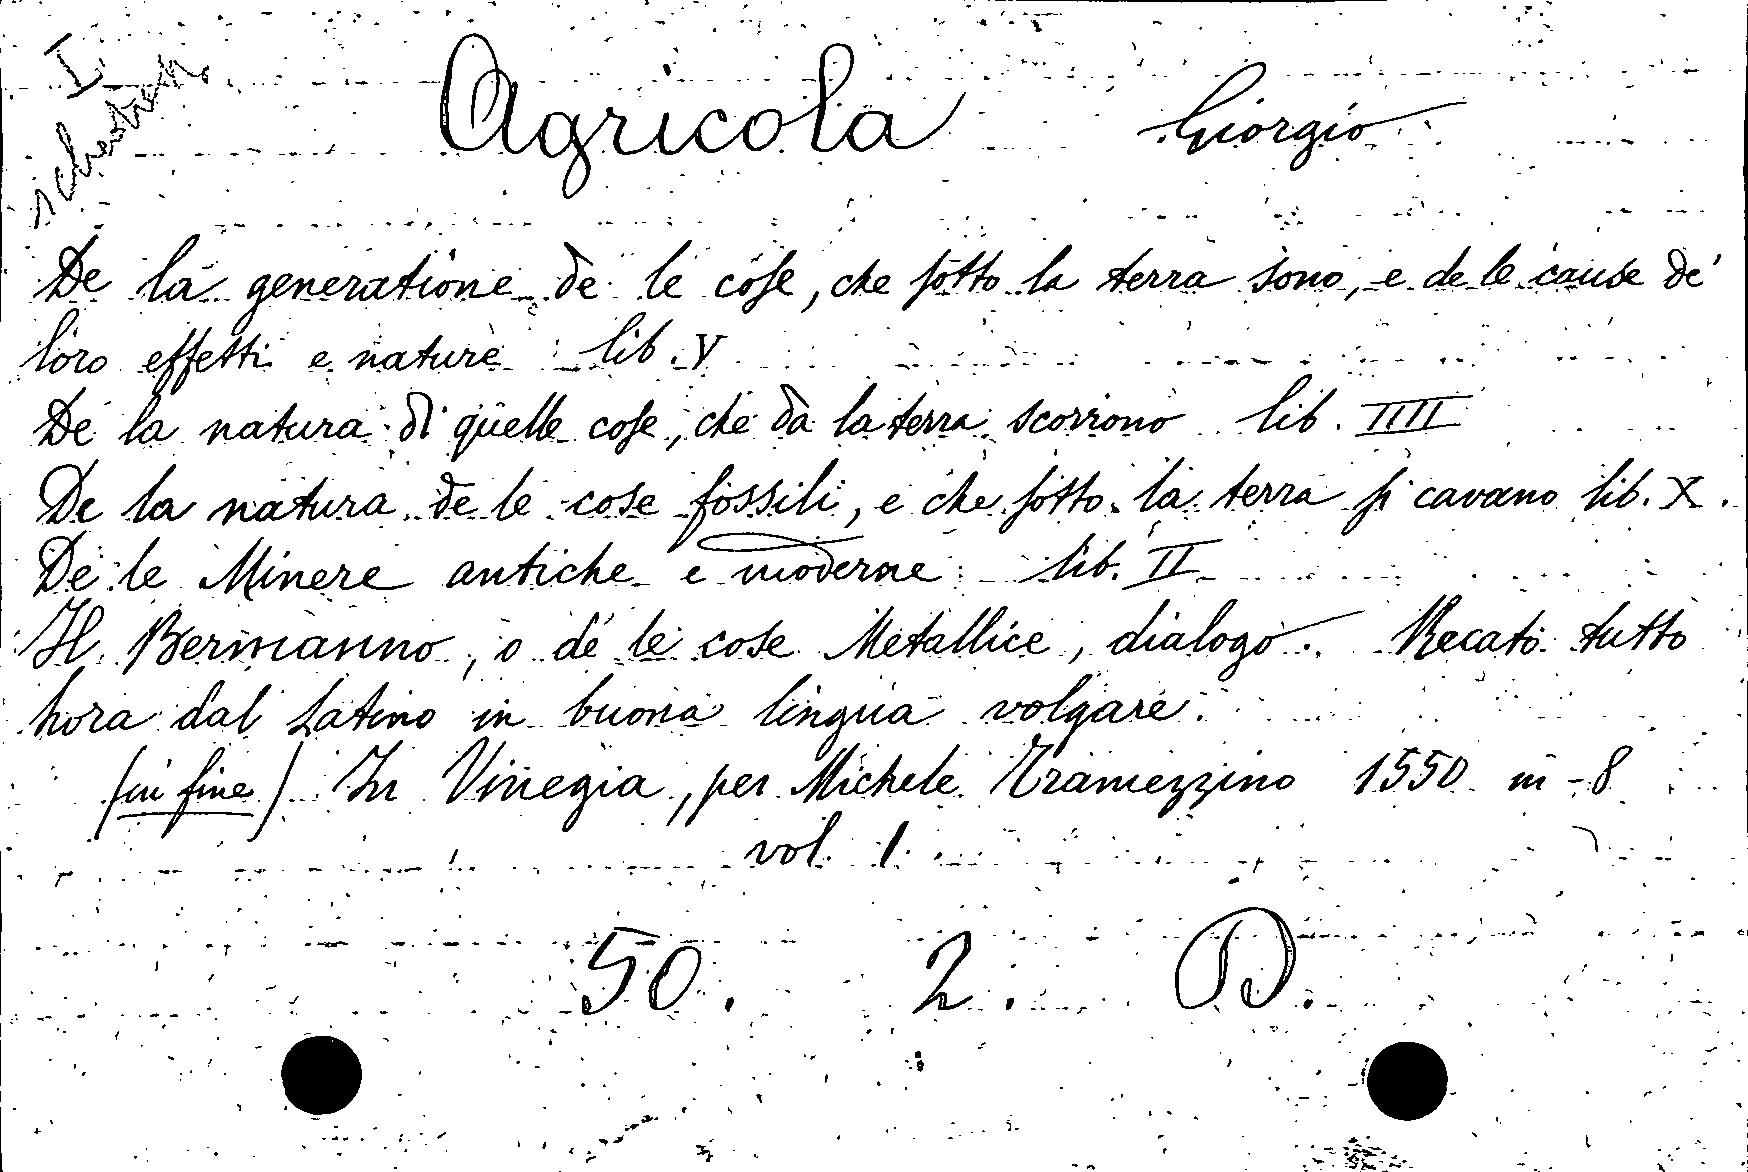 I
schedato
Agricola Giorgio
De la generatione de le cose, che sotto la terra sono, e de le cause de'
loro effetti e nature lib. V
De la natura di quelle cose, che da la terra scorrono lib. IIII
De la natura de le cose fossili, e che sotto la terra si cavano lib. X.
De le Minere antiche e moderne lib. II
Il Bermanno, o de le cose Metallice, dialogo. Recato tutto
hora dal Latino in buona lingua volgare.
(in fine) In Vinegia, per Michele Tramezzino 1550 in-8
vol. 1
50. 2. D.